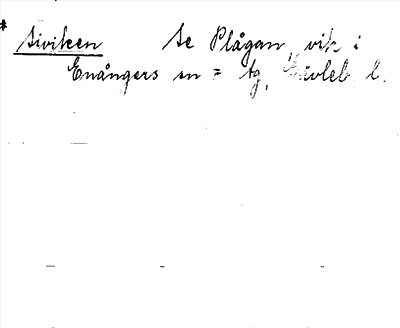 * Siviken Se Plågan, vik i
Enångers sn = tg, Gävleb. l.